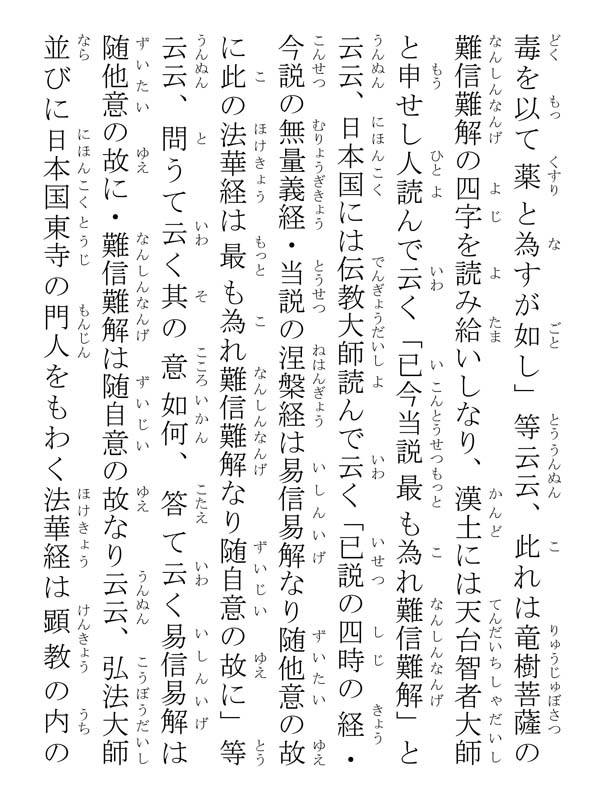 毒を以て薬と為すが如し」等云云、此れは竜樹菩薩の
難信難解の四字を読み給いしなり、漢土には天台智者大師
と申せし人読んで云く「已今当説最も為れ難信難解」と
云云、日本国には伝教大師読んで云く「已説の四時の経・
今説の無量義経・当説の涅槃経は易信易解なり随他意の故
に此の法華経は最も為れ難信難解なり随自意の故に」等
云云、問うて云く其の意如何、答て云く易信易解は
随他意の故に・難信難解は随自意の故なり云云、弘法大師
並びに日本国東寺の門人をもわく法華経は顕教の内の